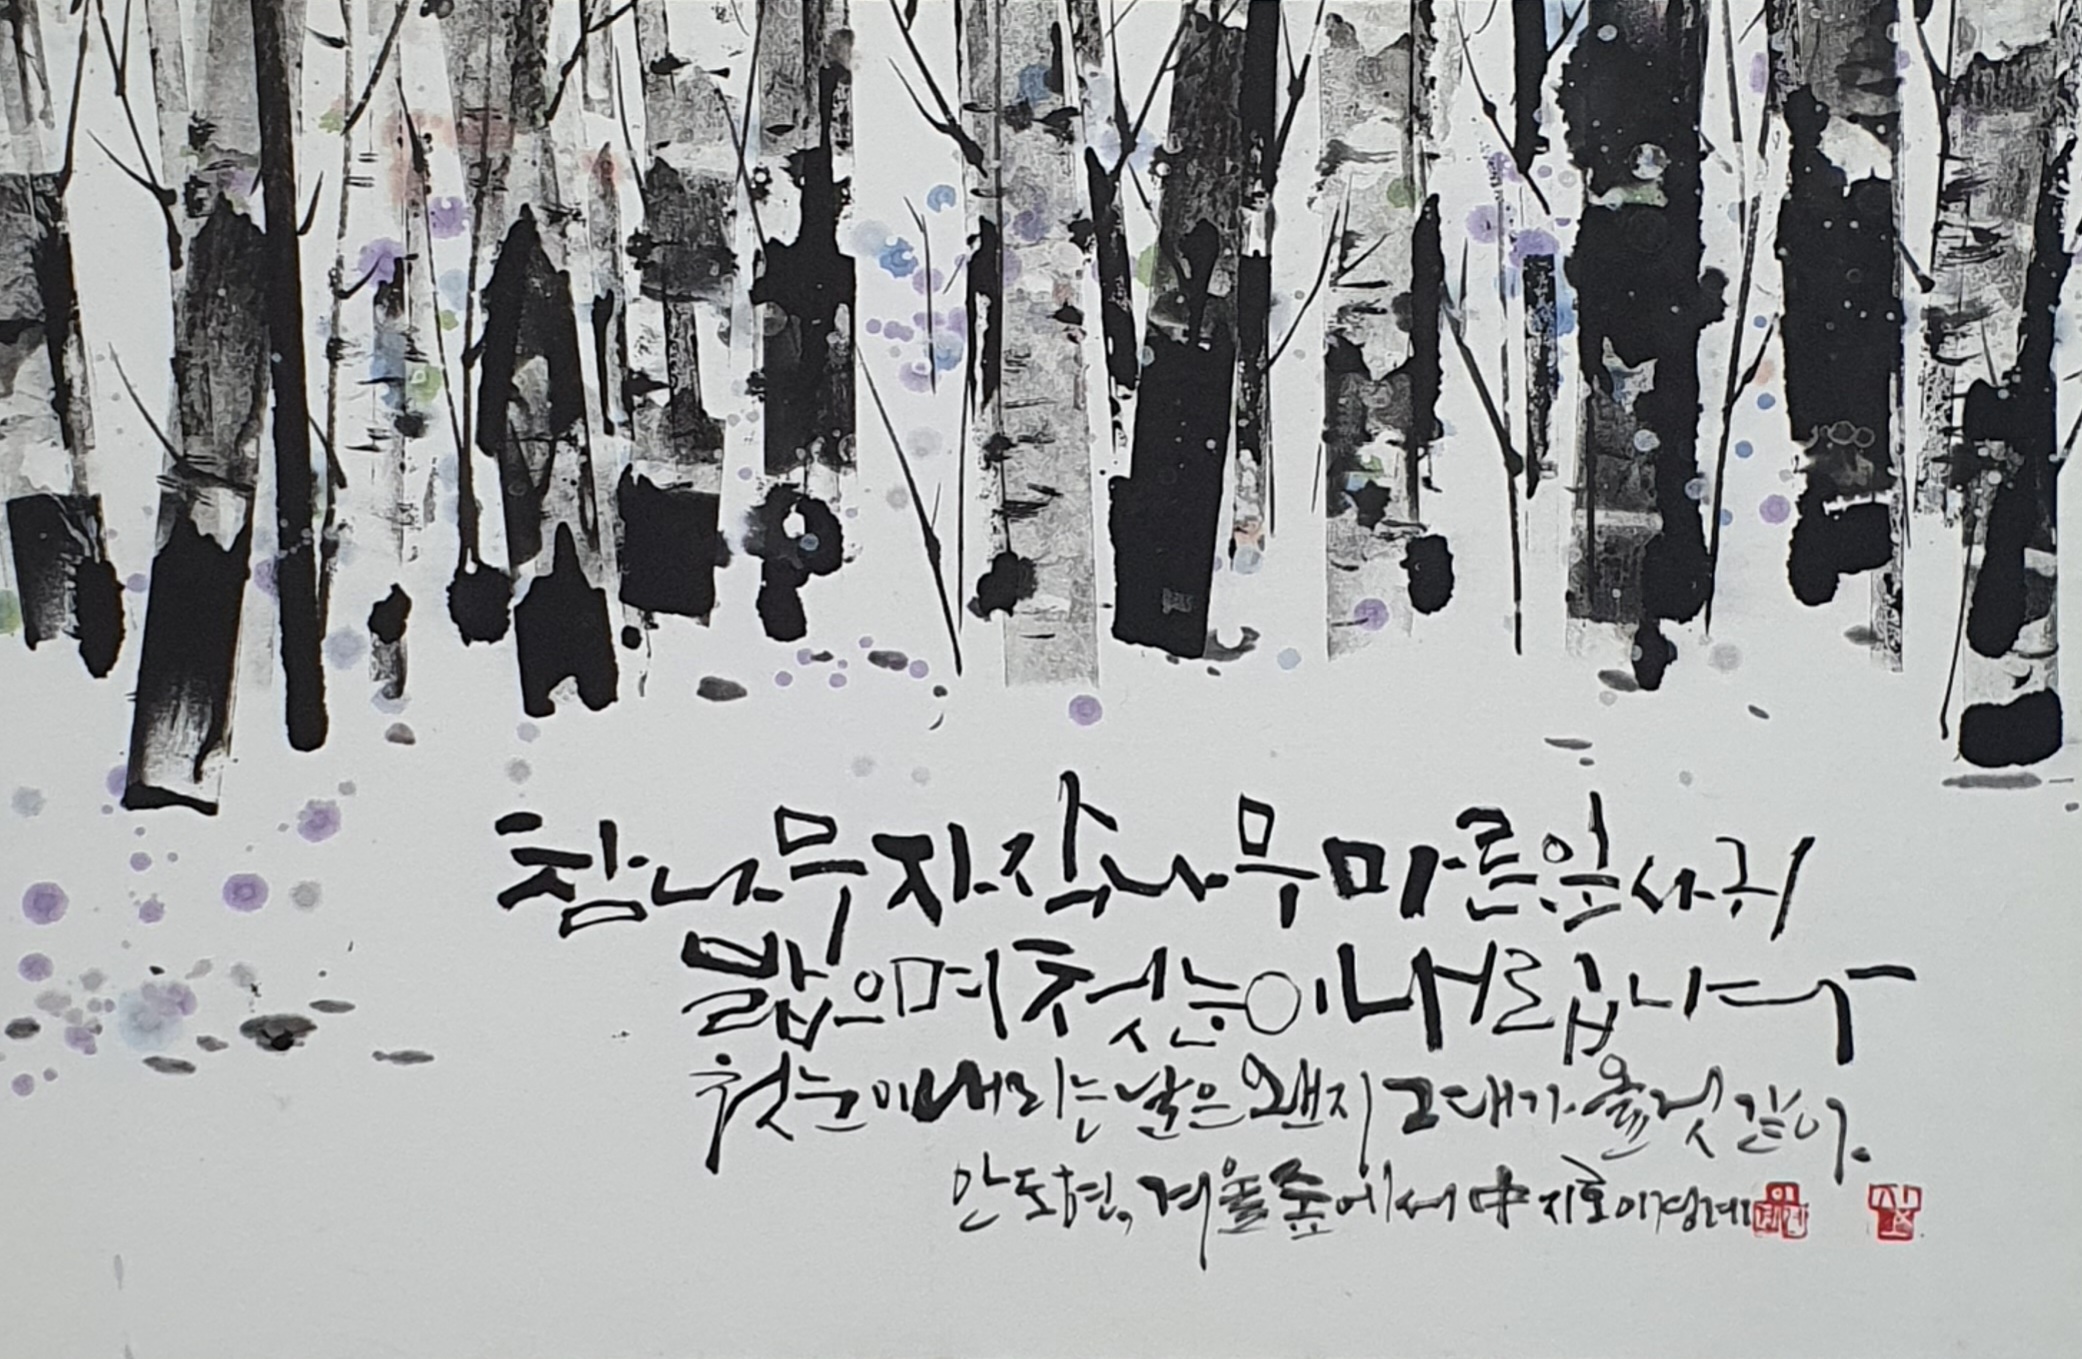 참나무 자작나무 마른 잎사귀
밟으며 첫눈이 내립니다
첫눈이 내리는 날은 왠지 그대가 올 것 같아.
안도현, 겨울 숲에서 中 지호 이경례